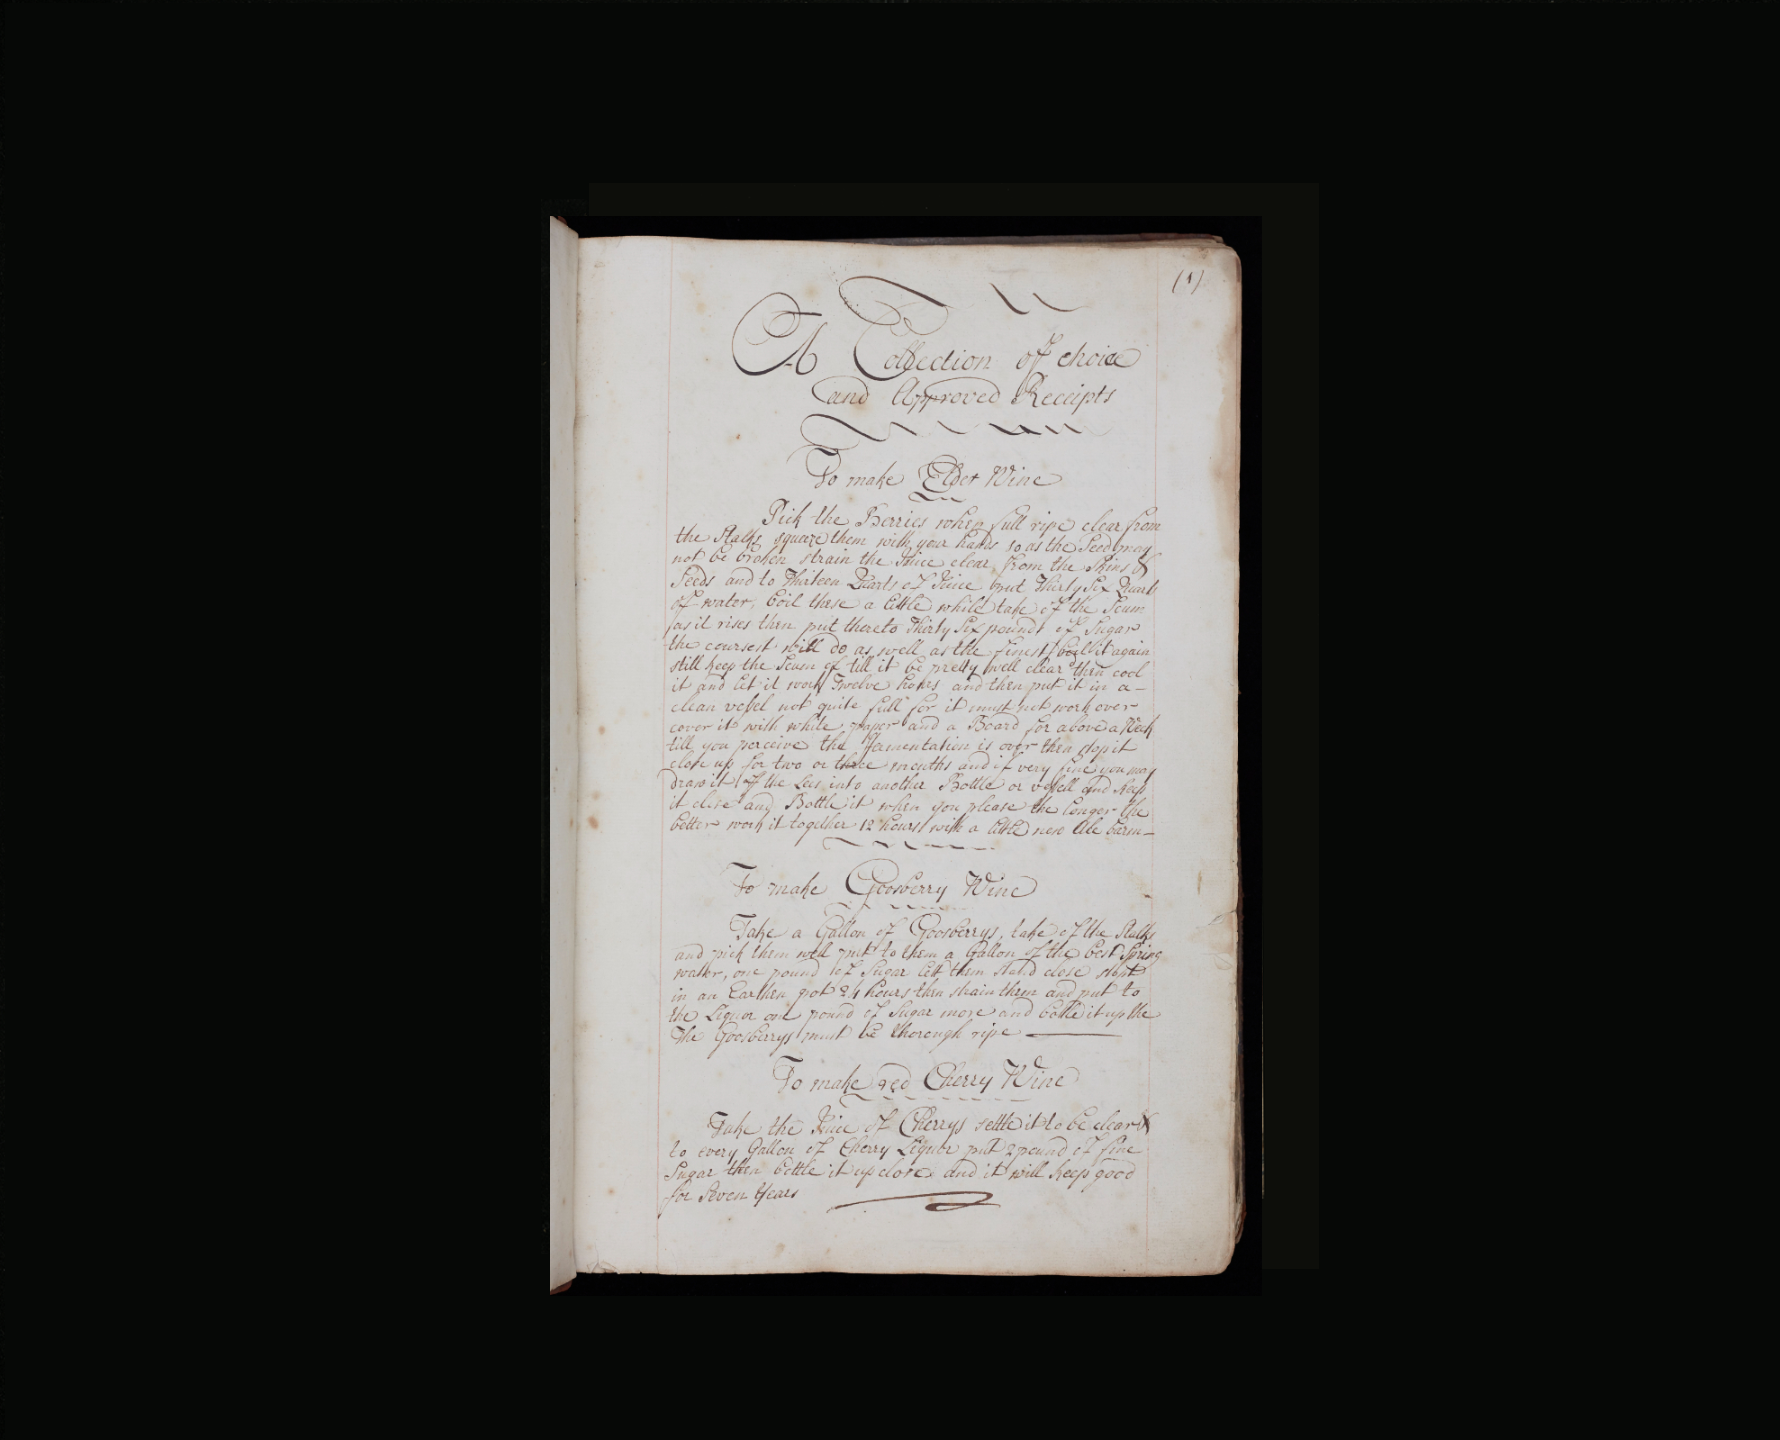 (1)
A Collection of choice
and Approved Receipts
To make Elder Wine
Pick the Berries when full ripe clear from
the Stalks squeze them with your hands so as the Seed may
not be broken strain the Juice clear from the Skins &
Seeds and to Thirteen Quarts of Juice put Thirty Six Quarts
of water, boil these a little while take of the Scum
as it rises then put thereto Thirty Six pounds of Sugar
the coursest will do as well as the finest boil it again
still keep the Scum of till it be pretty well clear then cool
it and let it work Twelve hours and then put it in a -
clean vessel not quite full for it must not work over
cover it with white paper and a Board for above a Week
till you perceive the fermentation is over then stop it
close up for two or three months and if very fine you may
draw it off the Lees into another Bottle or vessell and keep
it close and Bottle it when you please the longer the
better work it together 12 hours with a little new Ale barm -
To make Goosberry Wine
Take a Gallon of Goosberrys, take of the Stalks
and pick them well put to them a Gallon of the best Spring
water, one pound of Sugar lett them stand close stopt
in an Earthen pot 24 hours then strain them and put to
the Liquor one pound of Sugar more and bottle it up the
The Goosberrys must be thorough ripe
To make red Cherry Wine
Take the Juice of Cherrys settle it to be clear &
to every Gallon of Cherry Liquor put 2 pound of fine
Sugar then bottle it up close and it will keep good
for Seven Years